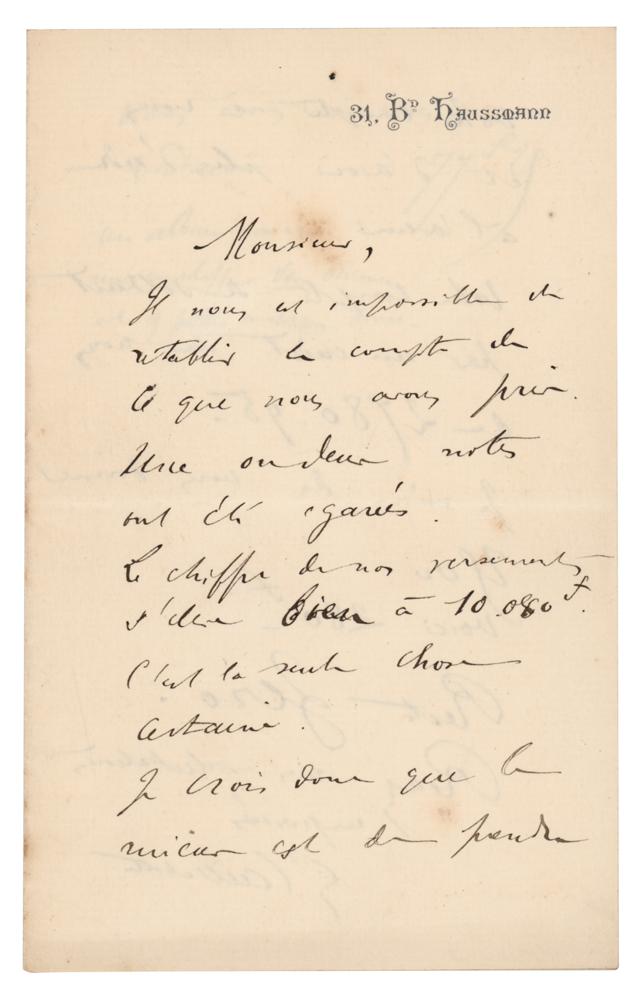 31, Bᴅ Haussmann
Monsieur,
Il nous est impossible de
rétablir le compte de
ce que nous avons pris.
Une ou deux notes
ont été égarées.
Le chiffre de nos versements
s'élève bien à 10.080 f.
C'est la seule chose
certaine.
Je crois donc que le
mieux est de prendre